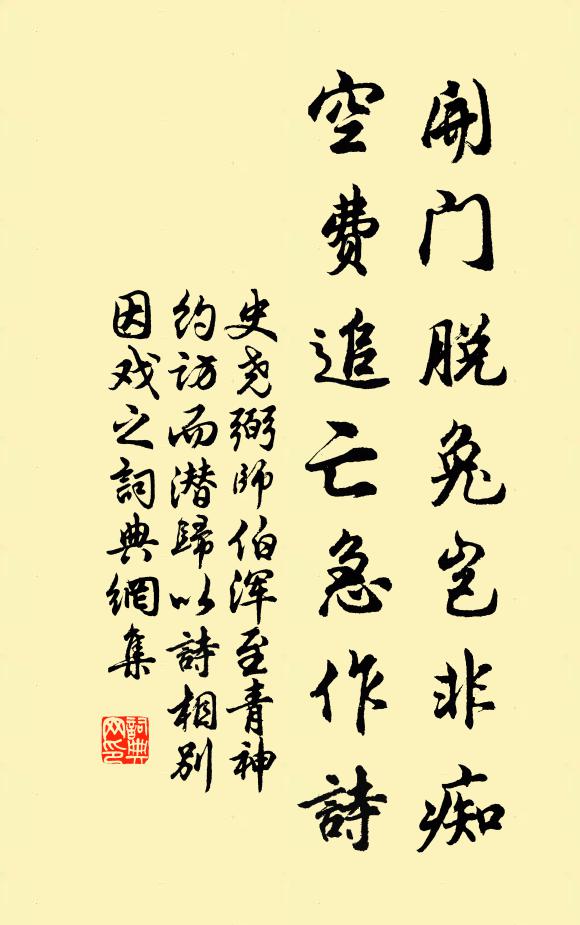 開门脱兔岂非痴
空费追亡急作詩
史尧弼師伯浑至青神
約訪而潜歸以詩相别
因戏之詞典網集
詞典
网印